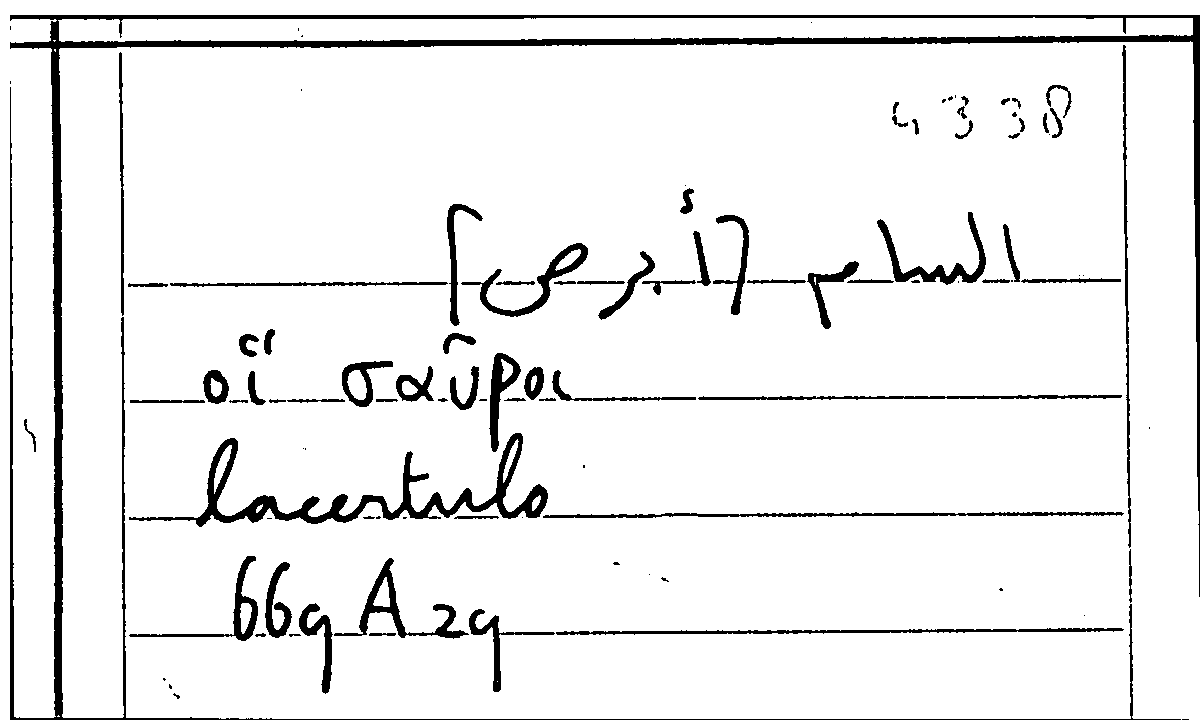 4338
السام [أبرص]
οἵ σαῦροι
lacertulo
669 A 29